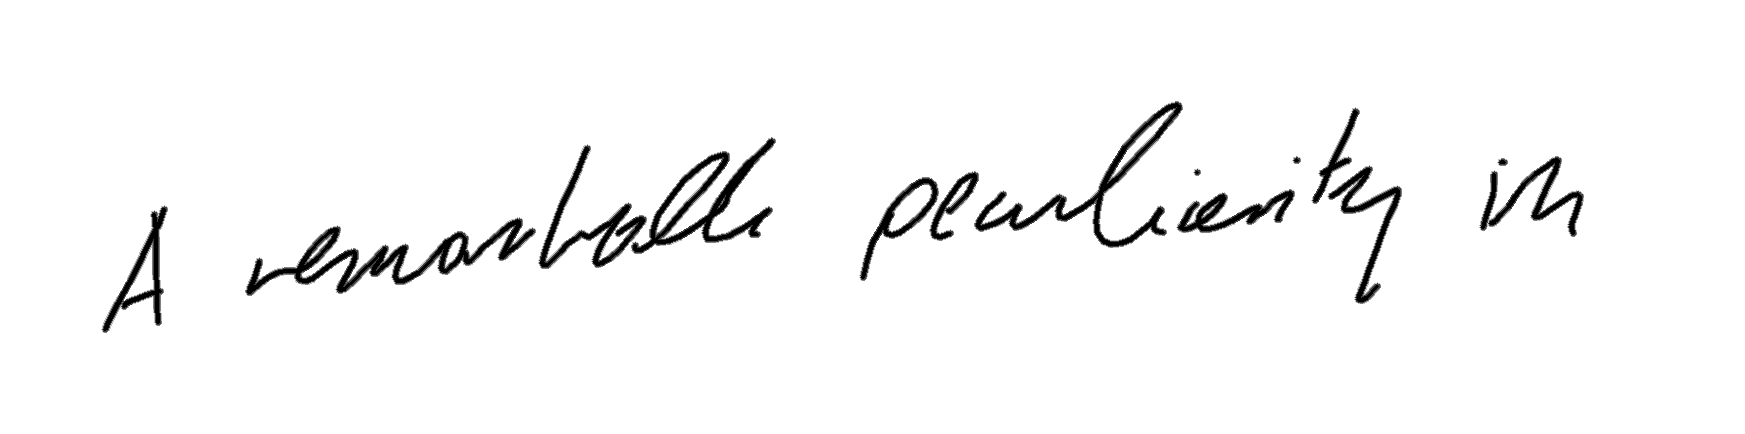 A remarkable peculiarity in